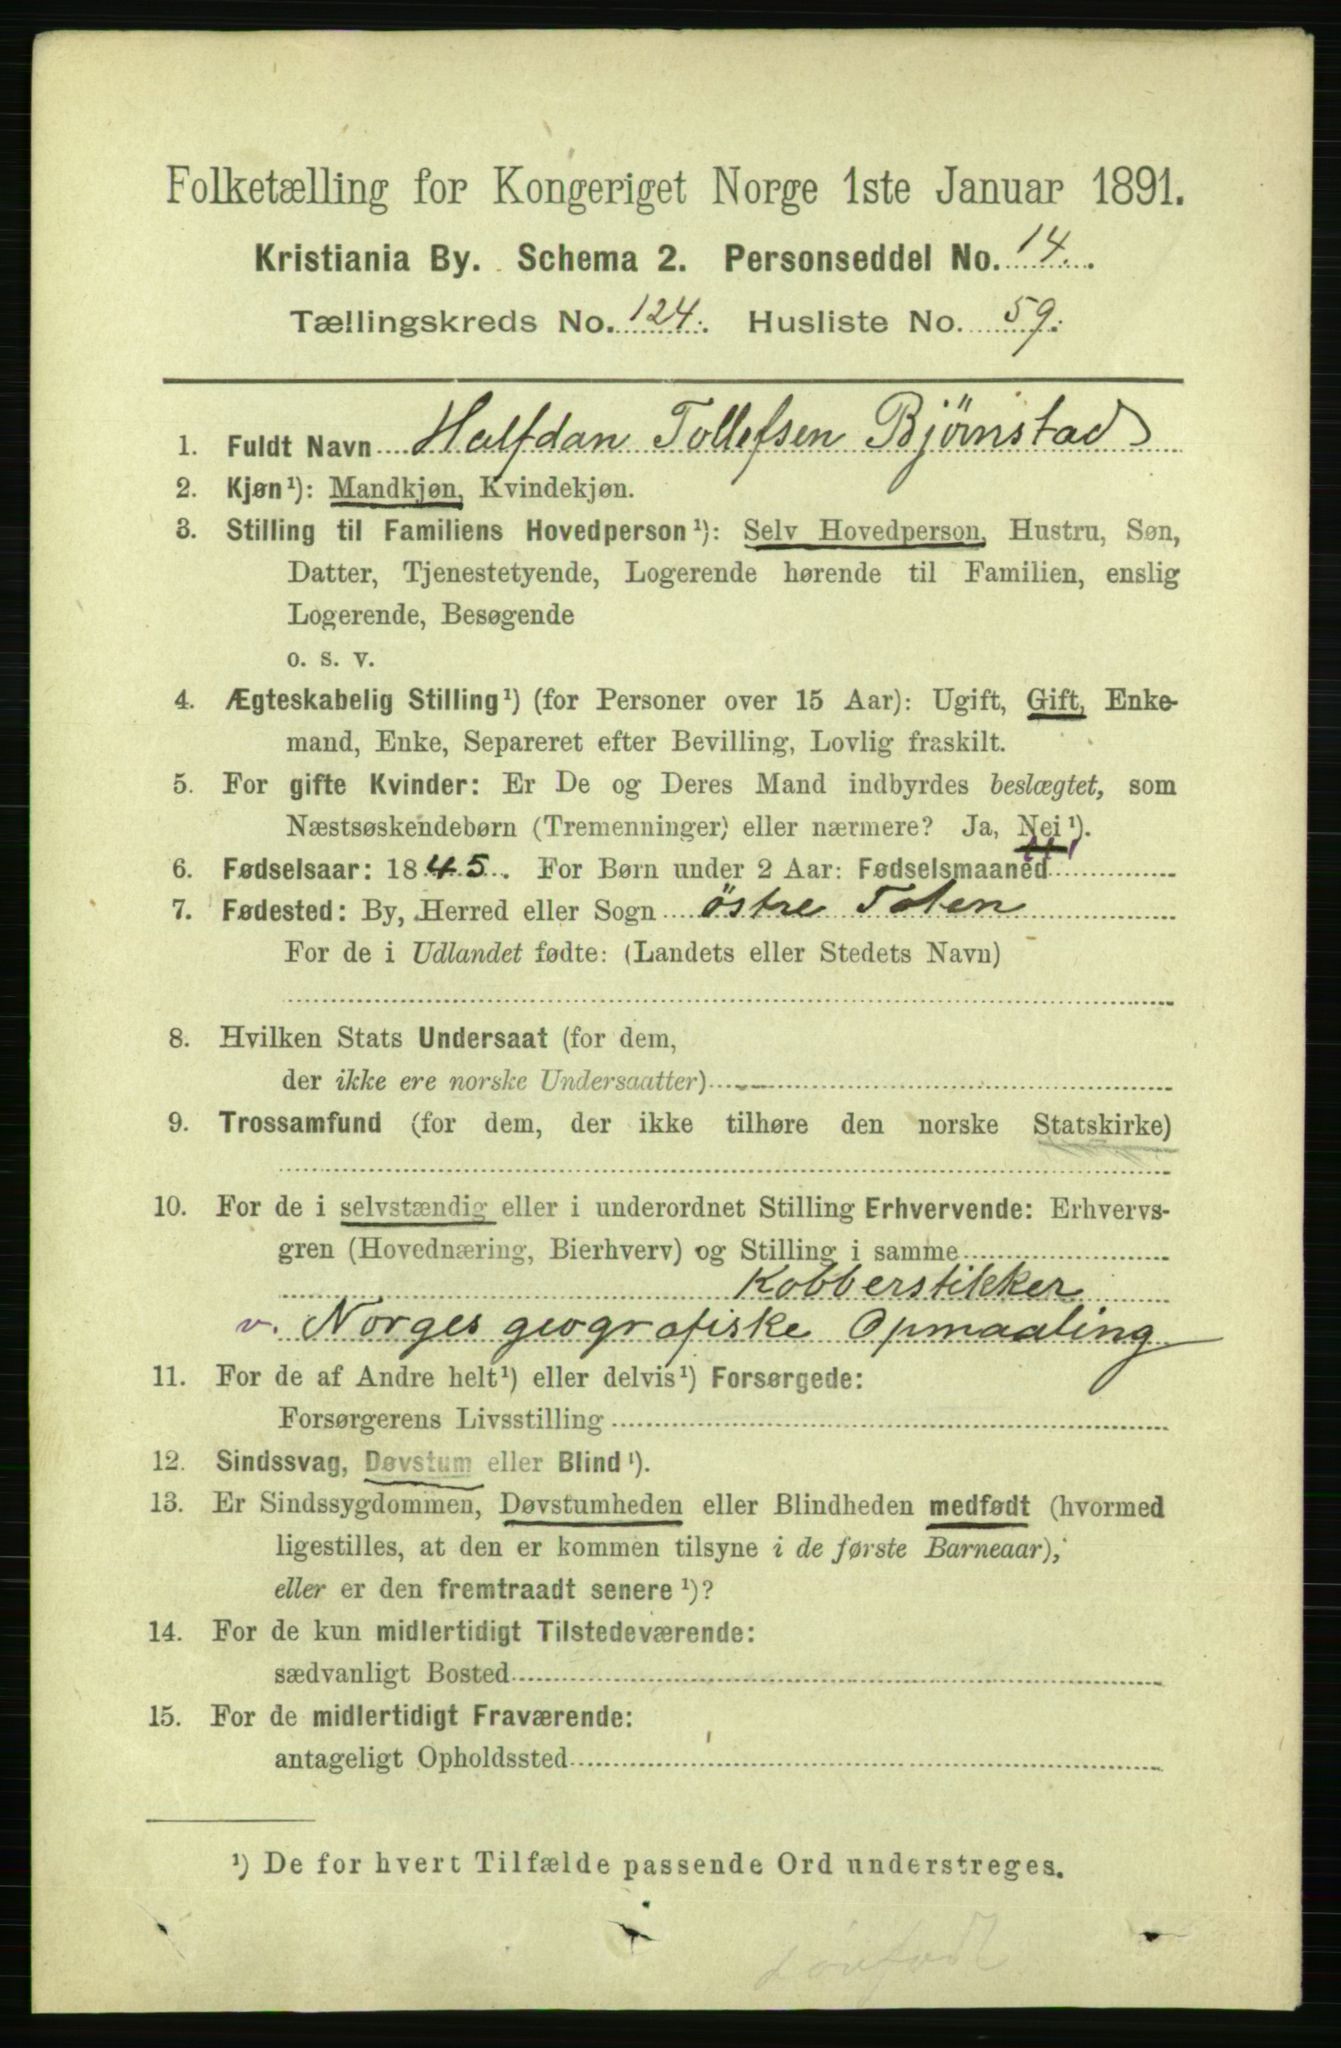 Folketælling for Kongeriget Norge 1ste Januar 1891.
Kristiania By. Schema 2. Personseddel No. 14.
Tællingskreds No. 124. Husliste No. 59.
1. Fuldt Navn Halfdan Tollefsen Bjørnstad
2. Kjøn¹): Mandkjøn, Kvindekjøn.
3. Stilling til Familiens Hovedperson¹): Selv Hovedperson, Hustru, Søn,
Datter, Tjenestetyende, Logerende hørende til Familien, enslig
Logerende, Besøgende
o. s. v.
4. Ægteskabelig Stilling¹) (for Personer over 15 Aar): Ugift, Gift, Enke-
mand, Enke, Separeret efter Bevilling, Lovlig fraskilt.
5. For gifte Kvinder: Er De og Deres Mand indbyrdes beslægtet, som
Næstsøskendebørn (Tremenninger) eller nærmere? Ja, Nei¹).
6. Fødselsaar: 1845. For Børn under 2 Aar: Fødselsmaaned
7. Fødested: By, Herred eller Sogn östre Toten
For de i Udlandet fødte: (Landets eller Stedets Navn)
8. Hvilken Stats Undersaat (for dem,
der ikke ere norske Undersaatter)
9. Trossamfund (for dem, der ikke tilhøre den norske Statskirke)
10. For de i selvstændig eller i underordnet Stilling Erhvervende: Erhvervs-
gren (Hovednæring, Bierhverv) og Stilling i samme
Kobberstikker
v. Norges geografiske Opmaaling
11. For de af Andre helt¹) eller delvis¹) Forsørgede:
Forsørgerens Livsstilling
12. Sindssvag, Døvstum eller Blind¹).
13. Er Sindssygdommen, Døvstumheden eller Blindheden medfødt (hvormed
ligestilles, at den er kommen tilsyne i de første Barneaar),
eller er den fremtraadt senere¹)?
14. For de kun midlertidigt Tilstedeværende:
sædvanligt Bosted
15. For de midlertidigt Fraværende:
antageligt Opholdssted
¹) De for hvert Tilfælde passende Ord understreges.